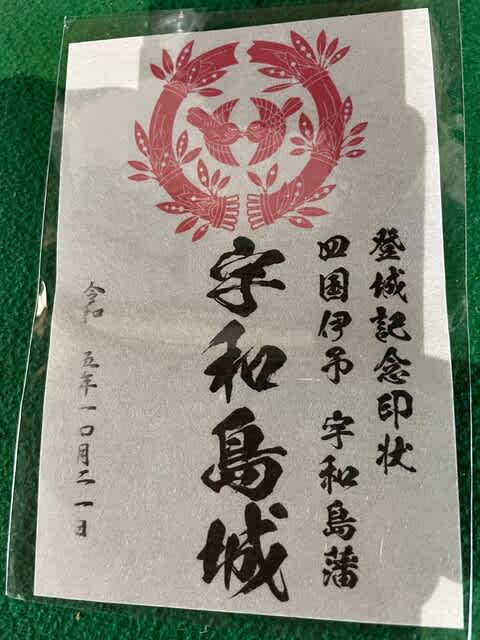 登城記念印状
四国伊予 宇和島藩
宇和島城
令和 五年一〇月二一日